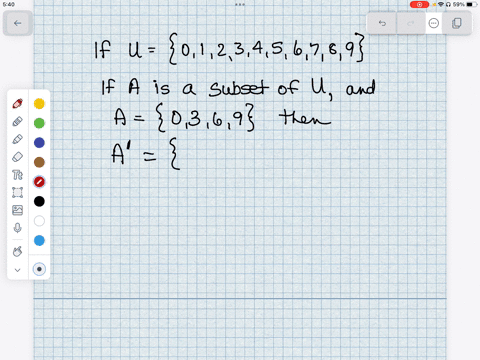 5:40
59%
If U = {0,1,2,3,4,5,6,7,8,9}
If A is a subset of U, and
A = {0,3,6,9} then
A' = {